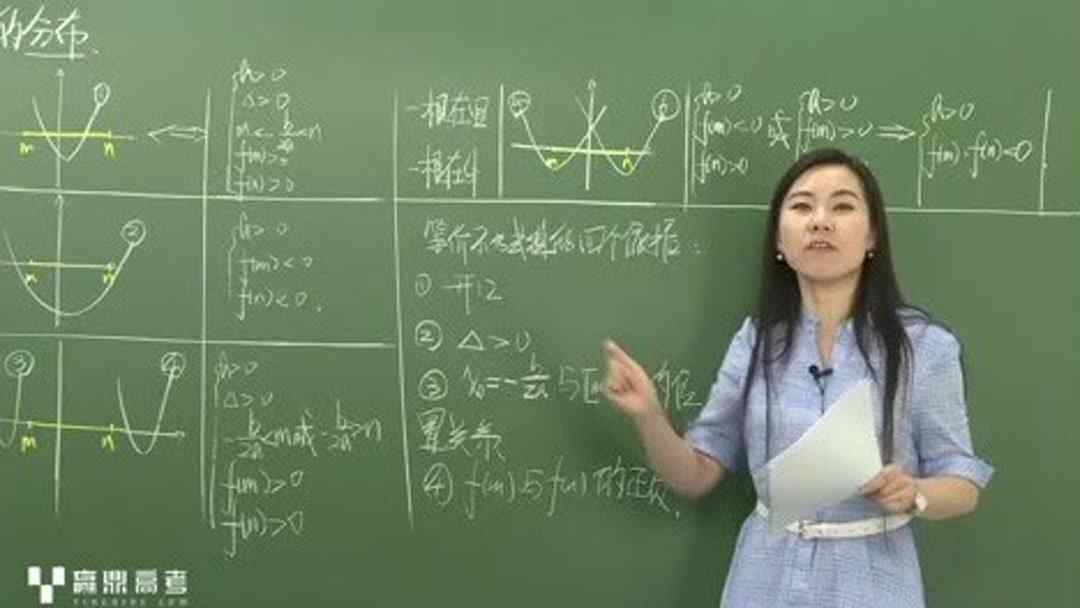 的分布.
①
m n
a>0
Δ>0
m<-b/2a<n
f(m)>0
f(n)>0
②
m n
a>0
f(m)<0
f(n)<0.
③ ④
m n
a>0
Δ>0
-b/2a<m或-b/2a>n
f(m)>0
f(n)>0
一根在里
一根在外
⑤ ⑥
m n
a>0
f(m)<0
f(n)>0
或
a>0
f(m)>0
⇒
a>0
f(m)·f(n)<0
等价不等式组的四个依据:
① 开口
② Δ>0
③ x₀=-b/2a与区 的位
置关系
④ f(m)与f(n)的正负.
赢鼎高考